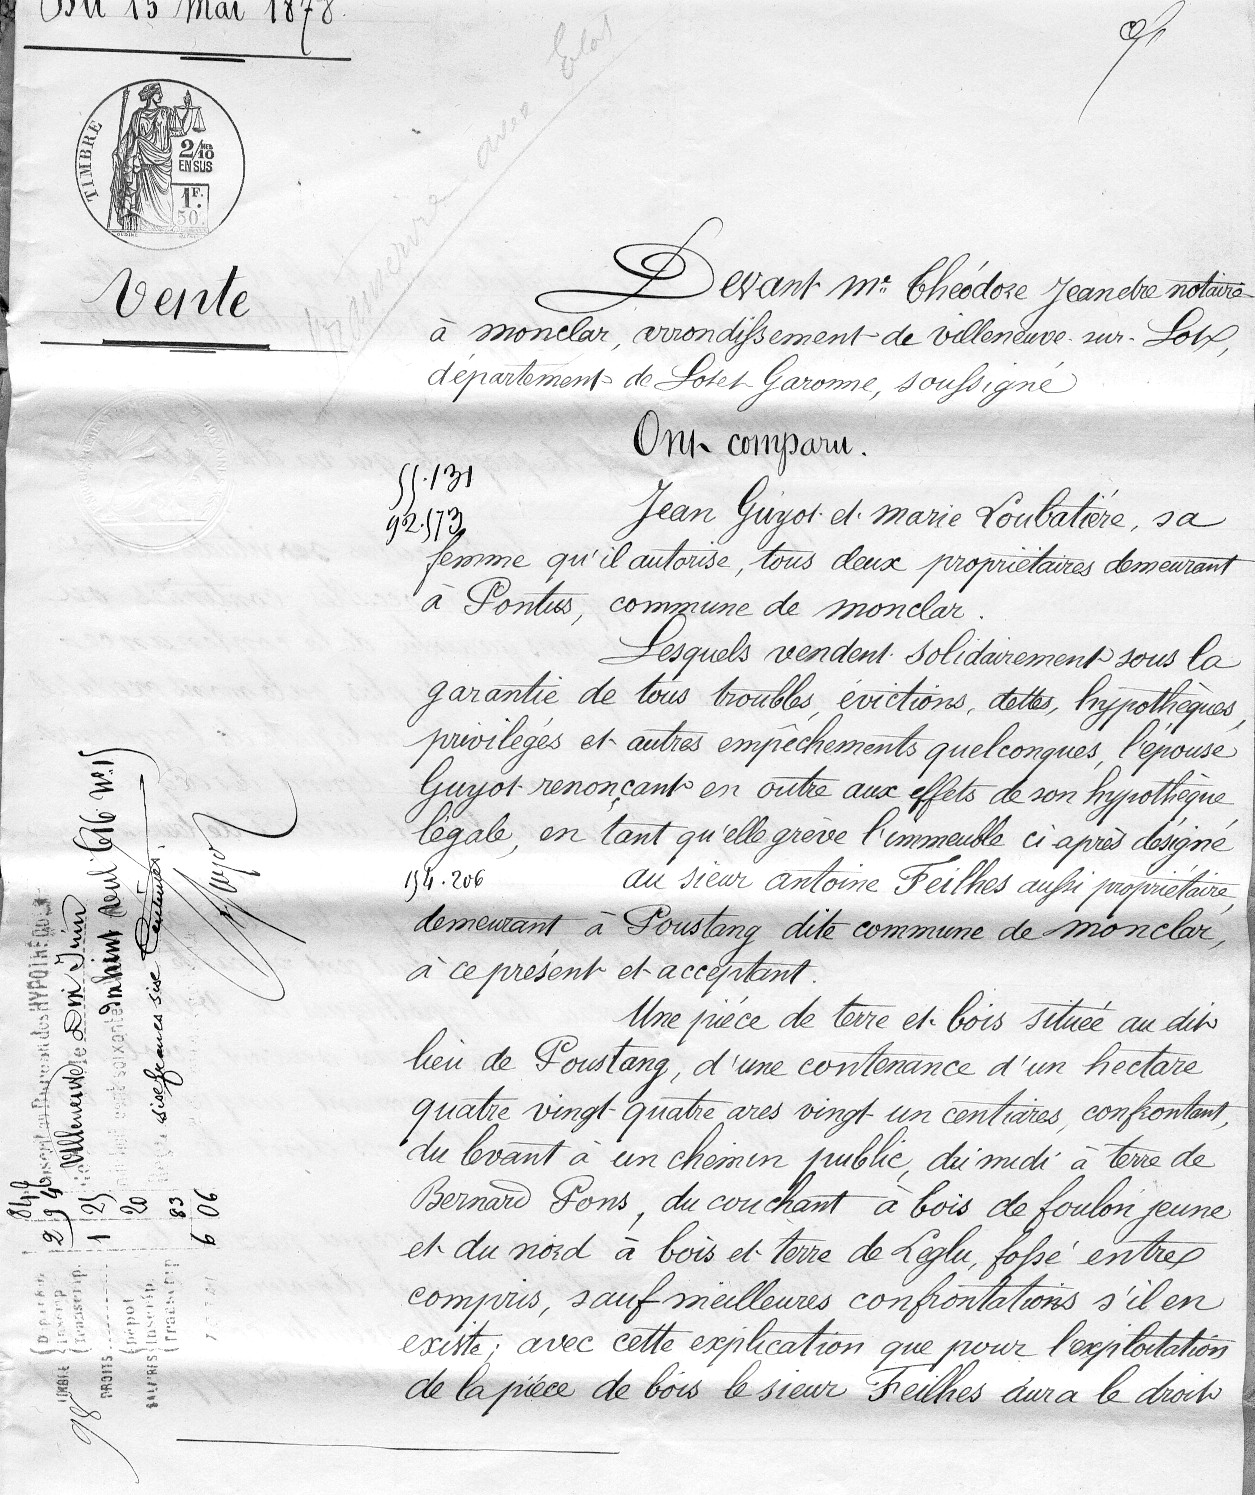 Du 15 Mai 1878.
TIMBRE
2/10 MES
EN SUS
1F.
50c.
Vente
Transcrire avec Etat
Devant Me. Théodore Jeandre notaire
à monclar, arrondissement de villeneuve-sur-Lot,
département de Lot et Garonne, soussigné
Ont comparu.
55.131
92.573
Jean Guyot et marie Loubatière, sa
femme qu'il autorise, tous deux propriétaires demeurant
à Pontus, commune de monclar.
Lesquels vendent solidairement sous la
garantie de tous troubles, évictions, dettes, hypothèques,
privilèges et autres empêchements quelconques, l'épouse
Guyot renonçant en outre aux effets de son hypothèque
légale, en tant qu'elle grève l'immeuble ci après désigné
154.206
au sieur antoine Feilhes aussi propriétaire,
demeurant à Poustang dite commune de monclar,
à ce présent et acceptant.
Une pièce de terre et bois située au dit
lieu de Poustang, d'une contenance d'un hectare
quatre vingt quatre ares vingt un centiares, confrontant,
du levant à un chemin public, du midi à terre de
Bernard Pons, du couchant à bois de foulon jeune
et du nord à bois et terre de Leglu, fossé entre
compris, sauf meilleures confrontations s'il en
existe; avec cette explication que pour l'exploitation
de la pièce de bois le sieur Feilhes aura le droit
Villeneuve le Dix Juin
six francs six centimes.
Guyot
TIMBRE
Inscrip.
Transcrip.
DROITS
SALAIRES
Dépôt
Inscrip.
Transcrip.
2 94
1 25
20
83
6 06
98